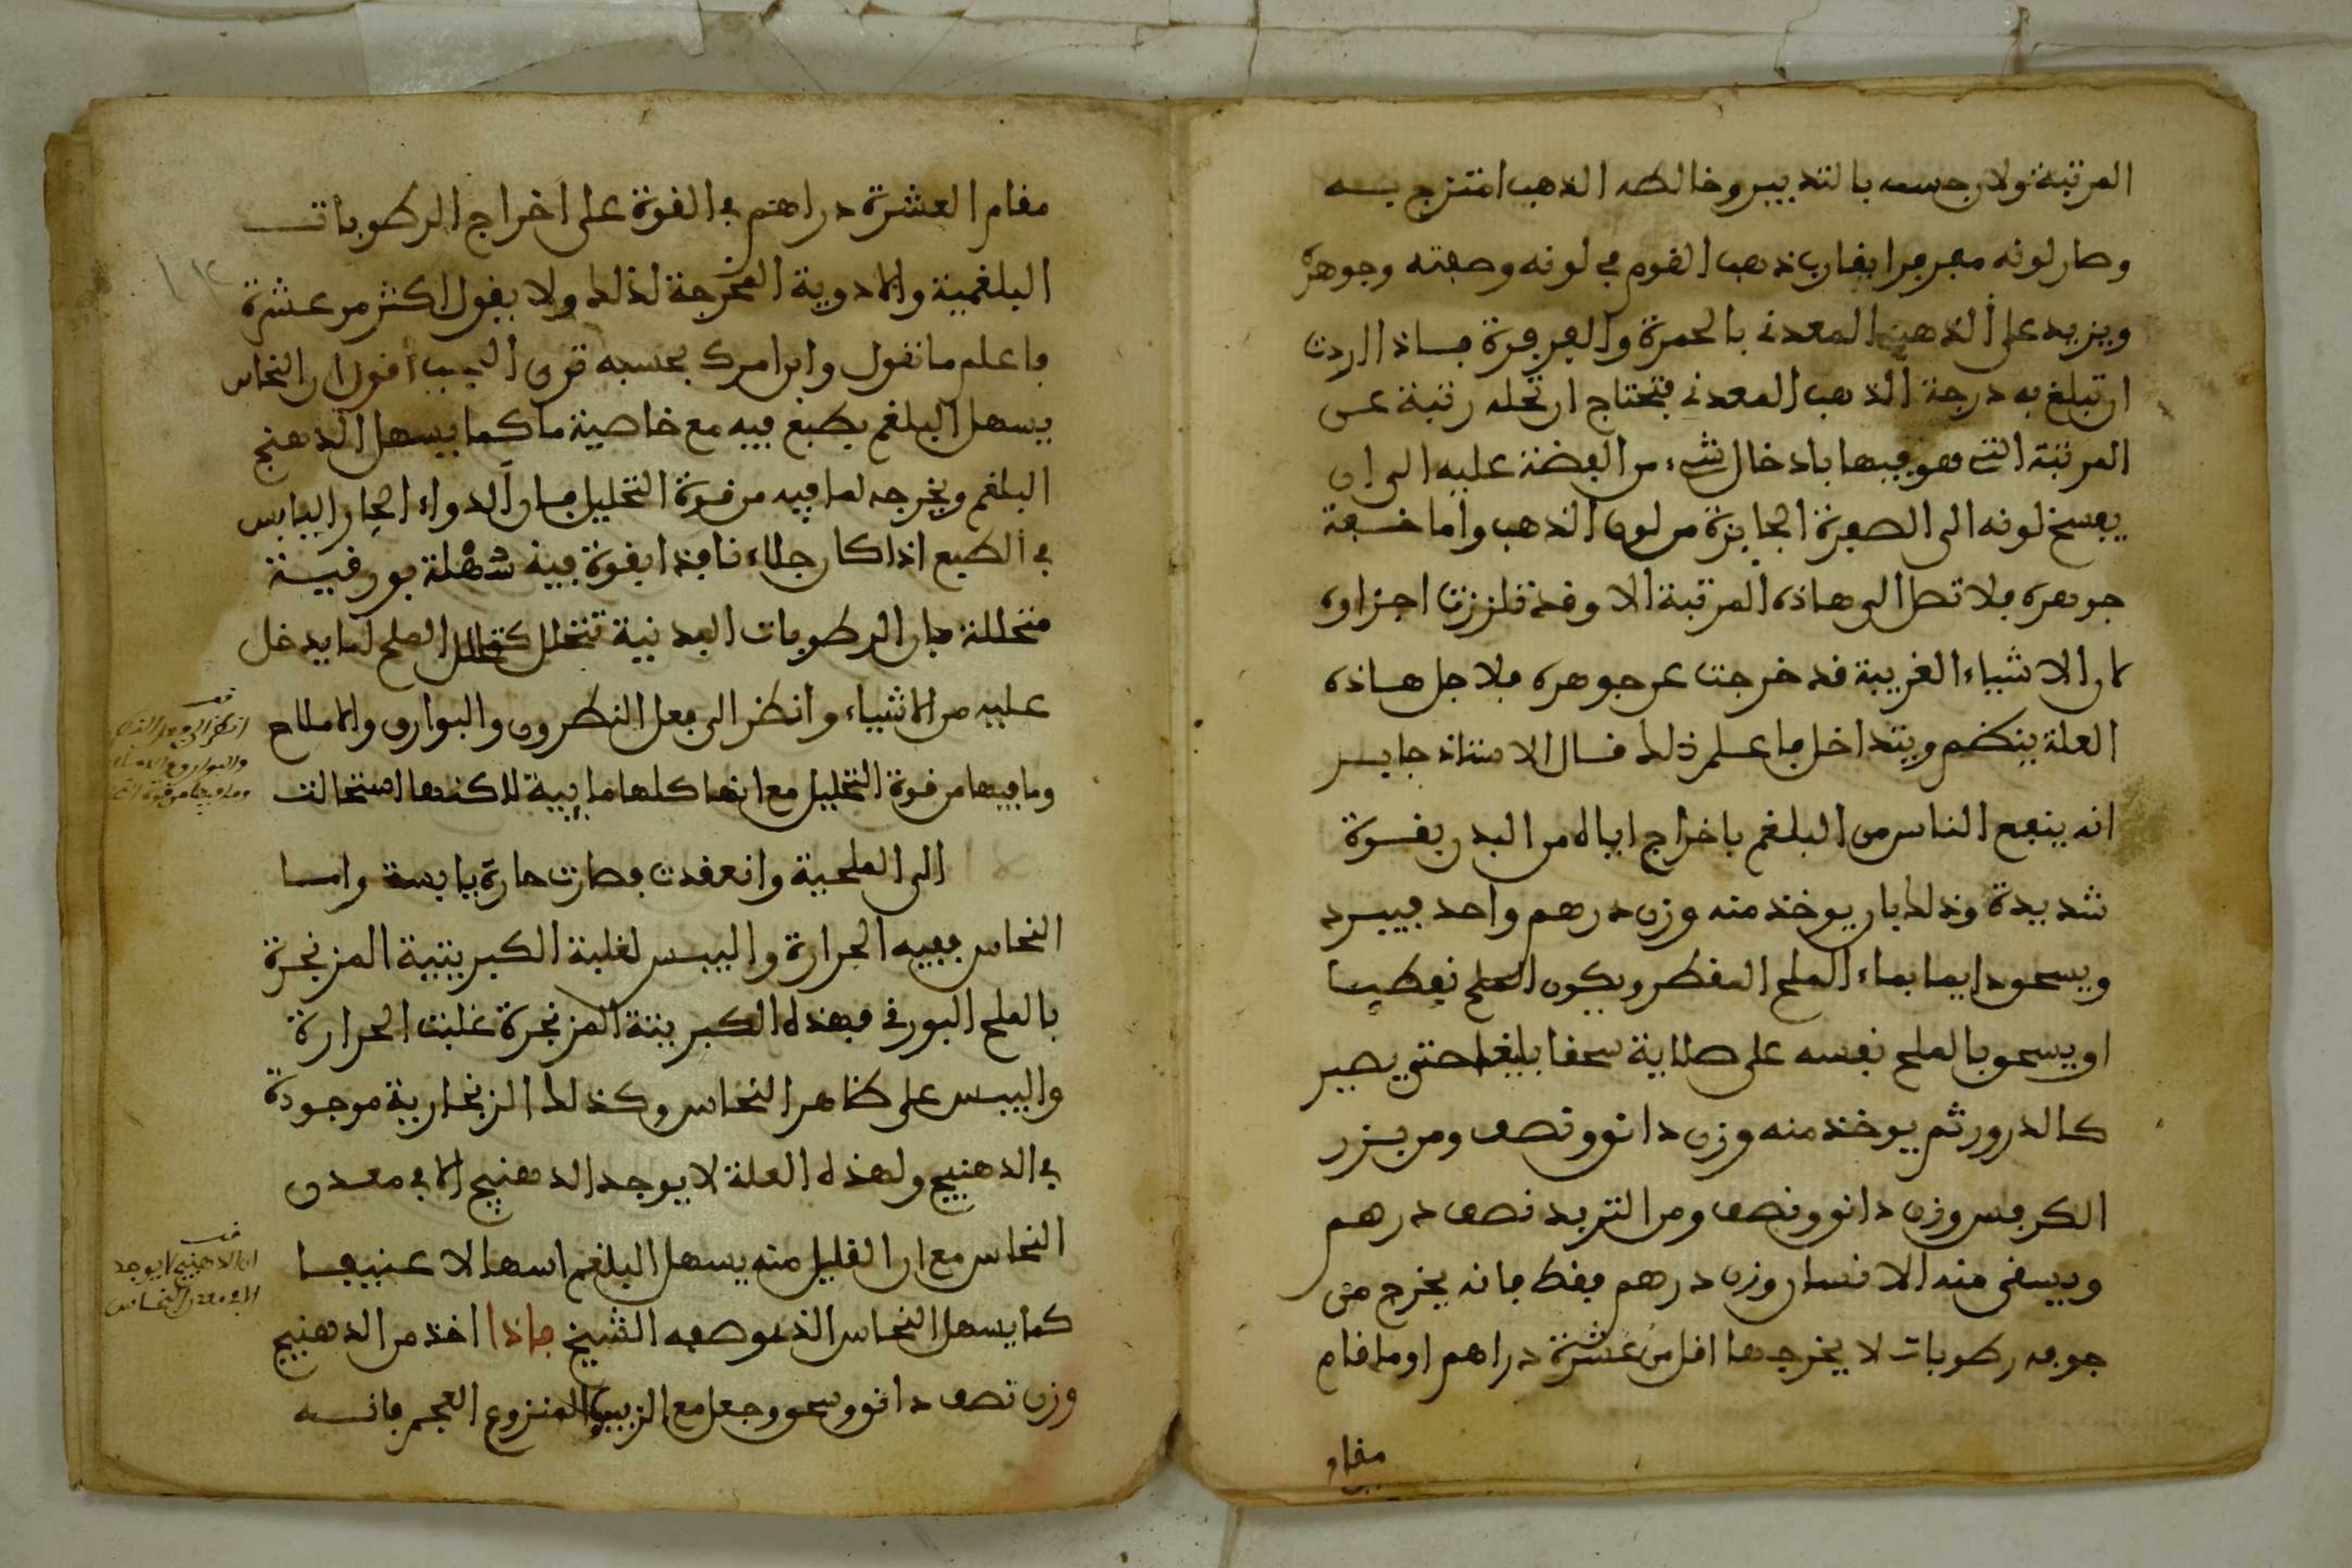 المرتبة ولان جسمه بالتدبير وخالطه الذهب امتزج بــه
وصار لونه مفرفرا يفارب ذهب الفوم في لونه وصبغته وجوهره
ويزيد على الذهب المعدني بالحمرة والفرفرة فــاذا اردت
ان تبلغ به درجة الذهب المعدني فتحتاج ان تحله رتبة عــن
المرتبة التي هو فيها بادخال شيء من الفضة عليه الى ان
يفسخ لونه الى الصفرة الجايزة من لون الذهب واما خــفة
جوهره فلا تصل الى هاذه المرتبة الا وفد تلززت اجزاوه
لان الاشياء الغريبة فد خرجت عن جوهره فلاجل هــاذه
العلة ينضم ويتداخل فاعــلم ذلك فــال الاستاذ جابــر
انه ينفع الناس من البلغم باخراج اياه من البدن بفــوة
شديدة وذلك بان يوخذ منه وزن درهم واحد فيبــرد
ويسحق دايما بماء الملح المفطر ويكون الملح نفطيــا
او يسحق بالملح نفسه على صلاية سحفا بليغا حتى يصير
كالذرور ثم يوخذ منه وزن دانق ونصف ومن بــزر
الكرفس وزن دانق ونصف ومن التربد نصف درهم
ويسفى منه الانسان وزن درهم ففط فانه يخرج من
جوفه رطوبات لا يخرجها افل من عشرة دراهم او ما فام
مفام
مفام العشرة دراهم في الفوة على اخراج الرطوبات
البلغمية والادوية المخرجة لذلك ولا يفول اكثر من عشرة
فاعلم ما نفول وابن امرك بحسبه ترى العجب افول ان النحاس
يسهل البلغم بطبع فيه مع خاصية ما كما يسهل الدهنج
البلغم ويخرجه لما فيه من فوة التحليل فــان الدواء الحار اليابس
في الطبع اذا كان جلاء نافذا بفوة فيه شعلة بورفيــة
متحللة فان الرطوبات البدنية تتحلل كتحلل الملح لما يدخل
عليه من الاشياء وانظر الى فعل النطرون والبوارق والاملاح
وما فيها من فوة التحليل مع انها كلها مايية لاكنها استحالت
الى الملحية وانعفدت فصارت حارة يابسة وامــا
النحاس ففيه الحرارة واليبــس لغلبة الكبريتية المزنجرة
بالملح البورفي فهذه الكبريتة المزنجرة غلبت الحرارة
واليبــس على ظاهر النحاس وكذلك الزنجارية موجودة
في الدهنج ولهذه العلة لا يوجد الدهنج الا في معــدن
النحاس مع ان الفليل منه يسهل البلغم اسهالا عنيفــا
كما يسهل النحاس الذي وصفه الشيخ فاذا اخذ من الدهنج
وزن نصف دانق وسحق وجعل مع الزبيب المنزوع العجم فانــه
قف
انظر الى فعل
والبوارق والاملاح
وما فيها من فوة
قف
ان الدهنج لا يوجد
الا في معدن النحاس